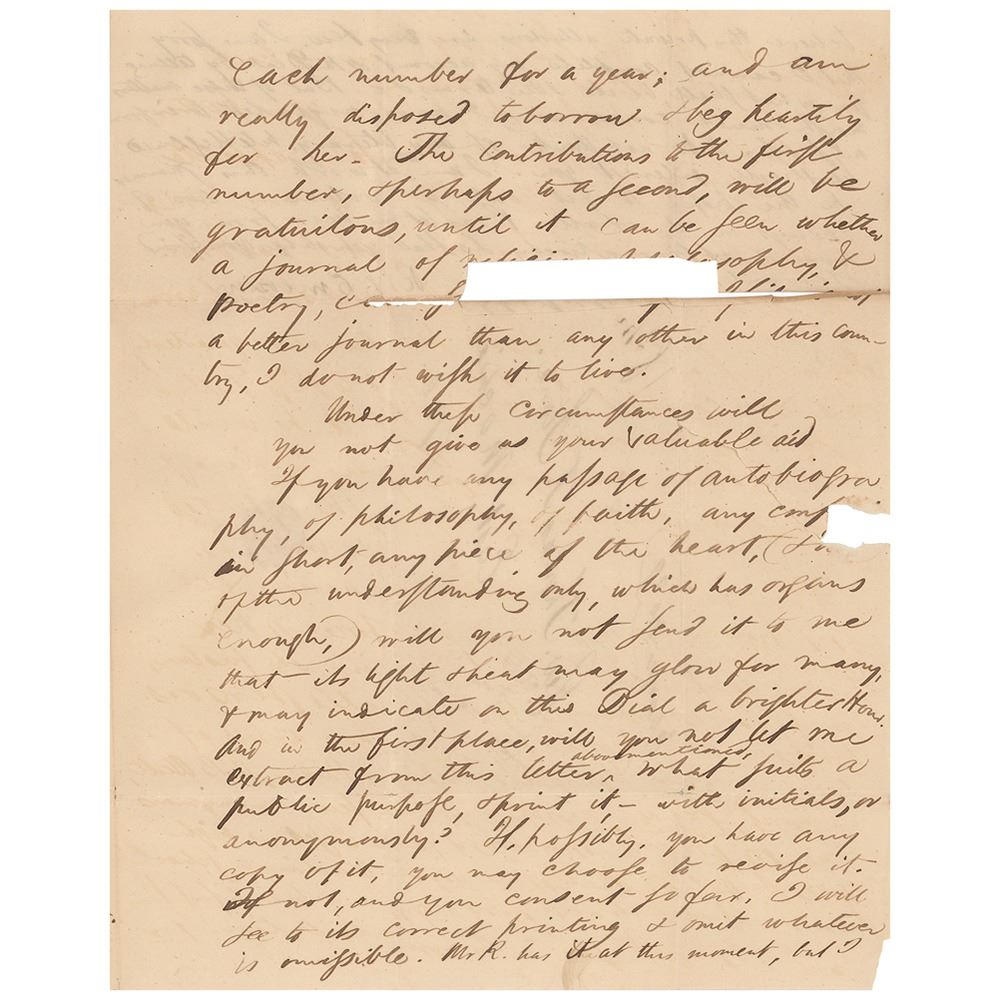 each number for a year; and am
really disposed to borrow & beg heartily
for her. The contributions to the first
number, & perhaps to a second, will be
gratuitous, until it can be seen whether
a journal of &
poetry,
a better journal than any other in this coun-
try, I do not wish it to live.
Under these circumstances will
you not give us your valuable aid
If you have any passage of autobiogra
phy, of philosophy, of faith, any conf
in short, any piece of the heart, (&
of the understanding only, which has organs
enough,) will you not send it to me
that its light & heat may glow for many,
& may indicate on this Dial a brighter Hour.
And in the first place, will you not let me
extract from this letter, abovementioned, what suits a
public purpose, & print it – with initials, or
anonymously? If, possibly, you have any
copy of it, you may choose to revise it.
If not, and you consent so far, I will
see to its correct printing & omit whatever
is omissible. Mr R. has it at this moment, but I